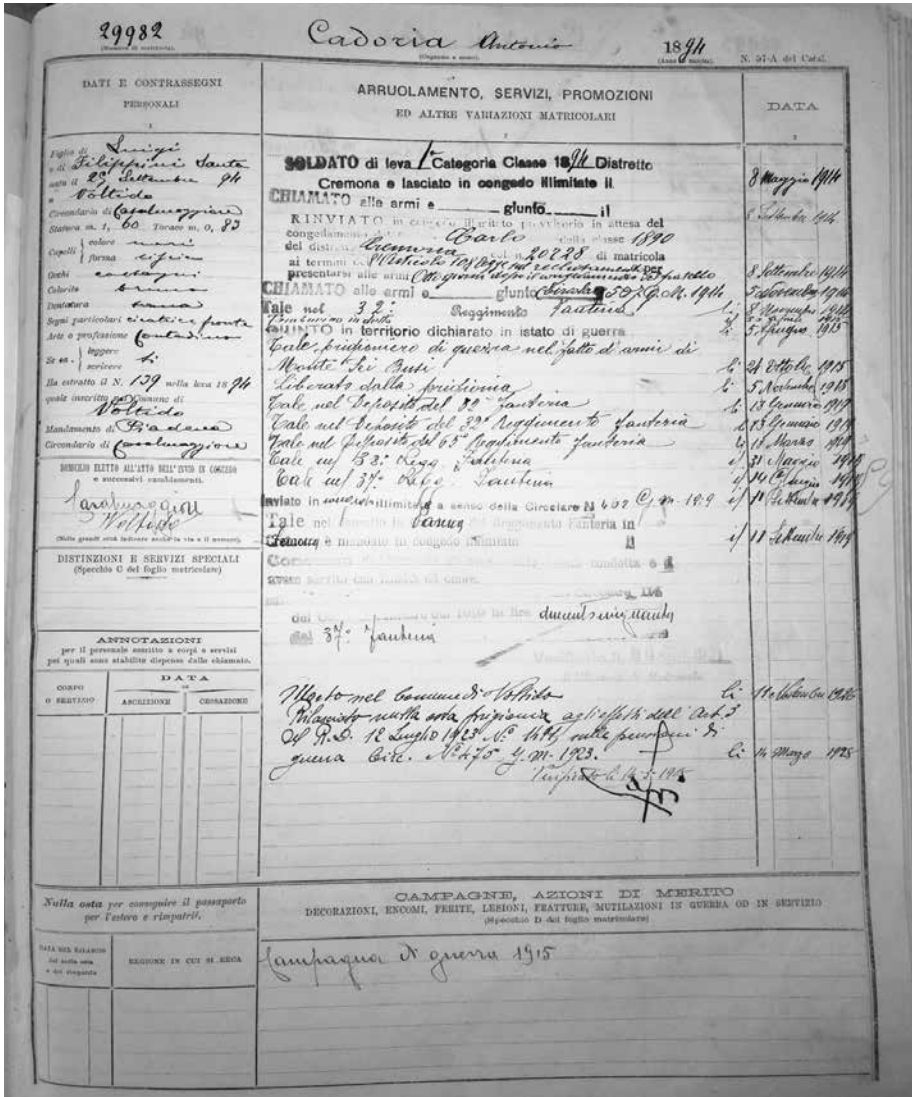 29982
(Numero di matricola).
Cadoria Antonio
(Cognome e nome).
1894
(Anno di nascita).
N. 57-A del Catal.
DATI E CONTRASSEGNI
PERSONALI
1
Figlio di Luigi
e di Filippini Santa
nato il 29 Settembre 94
a Voltido
Circondario di Casalmaggiore
Statura m. 1, 60 Torace m. 0, 83
Capelli colore neri
forma
Occhi castagni
Colorito bruno
Dentatura sana
Segni particolari cicatrice fronte
Arte o professione Contadino
Se sa leggere
scrivere si
Ha estratto il N. 139 nella leva 1894
quale inscritto nel Comune di
Voltido
Mandamento di Piadena
Circondario di Casalmaggiore
DOMICILIO ELETTO ALL'ATTO DELL'INVIO IN CONGEDO
e successivi cambiamenti.
Casalmaggiore
Voltido
(Nelle grandi città indicare anche la via e il numero).
DISTINZIONI E SERVIZI SPECIALI
(Specchio C del foglio matricolare)
ANNOTAZIONI
per il personale ascritto a corpi e servizi
pei quali sono stabilite dispense dalle chiamate.
CORPO
O SERVIZIO
DATA
DI
ASCRIZIONE
CESSAZIONE
ARRUOLAMENTO, SERVIZI, PROMOZIONI
ED ALTRE VARIAZIONI MATRICOLARI
2
DATA
3
SOLDATO di leva 1ª Categoria Classe 1894 Distretto
Cremona e lasciato in congedo illimitato il 8 Maggio 1914
CHIAMATO alle armi e giunto il 8 Settembre 1914
RINVIATO in congedo illimitato provvisorio in attesa del
congedamento Carlo della classe 1890
del distretto Cremona col n. 20228 di matricola
ai termini dell'Articolo 108
presentarsi alle armi Otto giorni dopo il congedamento del fratello 8 Settembre 1914
CHIAMATO alle armi e giunto Circolare G. M. 1914 5 Novembre 1914
Tale nel 32° Reggimento Fanteria li 8 Novembre 1914
GIUNTO in territorio dichiarato in istato di guerra li 5 Giugno 1915
Tale prigioniero di guerra nel fatto d'armi di
Monte Sei Busi li 24 Ottobre 1915
Liberato dalla prigionia li 5 Novembre 1918
Tale nel Deposito del 82° fanteria li 13 Gennaio 1919
Tale nel Deposito del 32° Reggimento fanteria li 13 Gennaio 1919
Tale nel Deposito del 65° Reggimento fanteria li 10 Marzo 1919
Tale nel Regg. Fanteria il 31 Maggio 1919
Tale nel 37° Regg. Fanteria il 14 1919
Inviato in congedo illimitato a senso della Circolare N 402 G. M. 1919 il 11 Settembre 1919
Tale nel Reggimento Fanteria in
Cremona è mandato in congedo illimitato il 11 Settembre 1919
del 37° Fanteria
Morto nel Comune di Voltido li 1926
Rilasciato nulla osta prigionia agli effetti dell'Art. 3
del R.D. 12 Luglio 1923 N° 1491 sulle pensioni di
guerra Circ. N° 475 G. M. 1923. li 14 Marzo 1928
Nulla osta per conseguire il passaporto
per l'estero e rimpatrii.
DATA DEL RILASCIO
del nulla osta
e del rimpatrio
REGIONE IN CUI SI RECA
CAMPAGNE, AZIONI DI MERITO
DECORAZIONI, ENCOMI, FERITE, LESIONI, FRATTURE, MUTILAZIONI IN GUERRA OD IN SERVIZIO
(Specchio D del foglio matricolare)
Campagna di guerra 1915